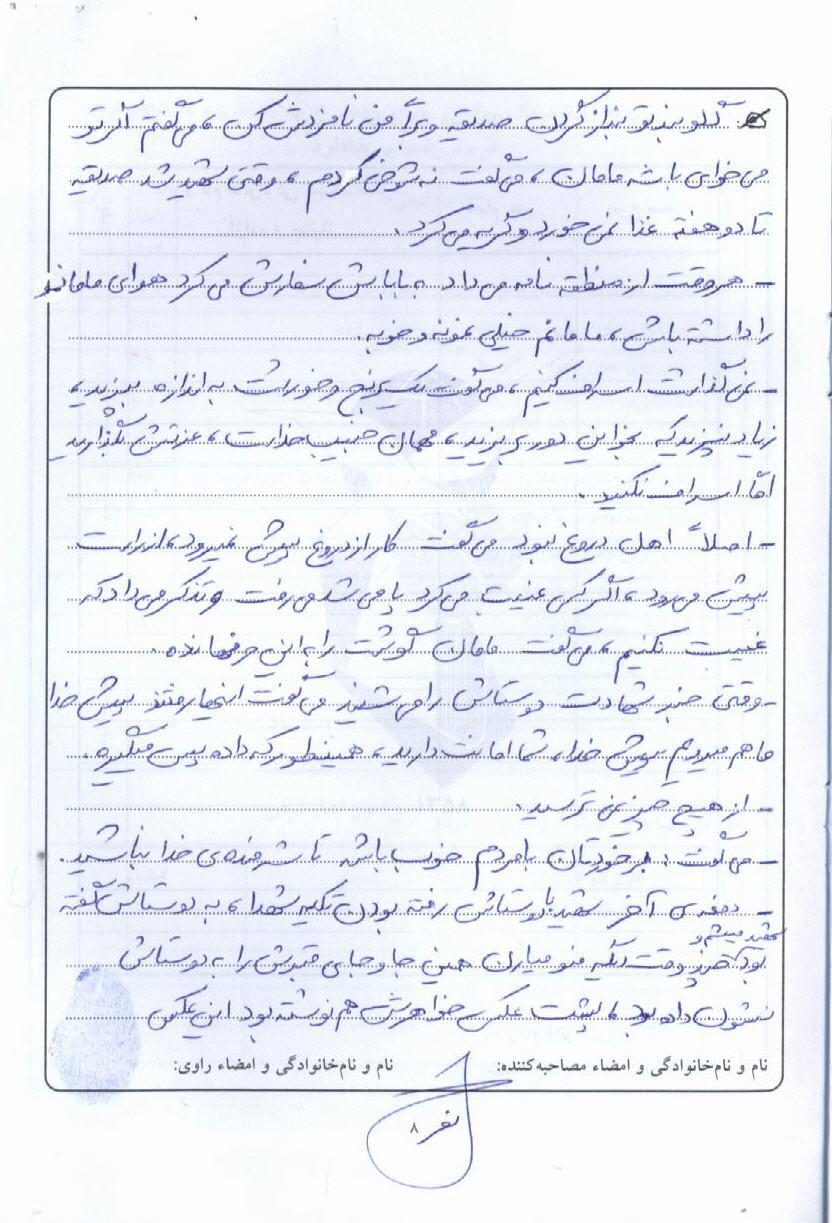 گلوبند تو بنداز گردن صدیقه و برا من نامزدش کن، می‌گفتم اگر تو
می‌خوای باشه مامان، می‌گفت نه شوخی کردم، وقتی شهید شد صدیقه
تا دو هفته غذا نمی‌خورد و گریه می‌کرد.
- هر وقت از منطقه نامه می‌داد به باباش سفارش می‌کرد هوای مامانمو
را داشته باش، مامانم خیلی نمونه و خوبه.
- نمی‌گذاشت اسراف کنیم، می‌گفت یک برنج و خوراکت به اندازه بپزید،
زیاد نپزید که بخواین دور بریزید، مهمان حبیب خداست، عزتش بگذارید
امّا اسراف نکنید.
- اصلاً اهل دروغ نبود می‌گفت کار از دروغ پیش نمیرود، از راست
پیش می‌رود، اگر کسی غیبت می‌کرد پا می‌شد می‌رفت و تذکر می‌داد که
غیبت نکنیم، می‌گفت مامان گوشت را به این حرفها نده.
- وقتی خبر شهادت دوستاش را می‌شنید می‌گفت اینها رفتند پیش خدا
ما هم میریم پیش خدا، شما امانت دارید، همینطور که داده پس میگیره.
- از هیچ چیز نمی‌ترسید.
- می‌گفت: برخوردتان با مردم خوب باشه تا شرمنده‌ی خدا نباشید.
- دفعه‌ی آخر شهید با دوستاش رفته بودن تکیه شهدا، به دوستاش گفته
شهید میشم و
بود چند وقت دیگه منو میارن همین جا و جای قبرش را به دوستاش
نشون داده بود، پشت عکس خواهرش هم نوشته بود این عکس
نام و نام‌خانوادگی و امضاء مصاحبه‌کننده: نام و نام‌خانوادگی و امضاء راوی:
۸